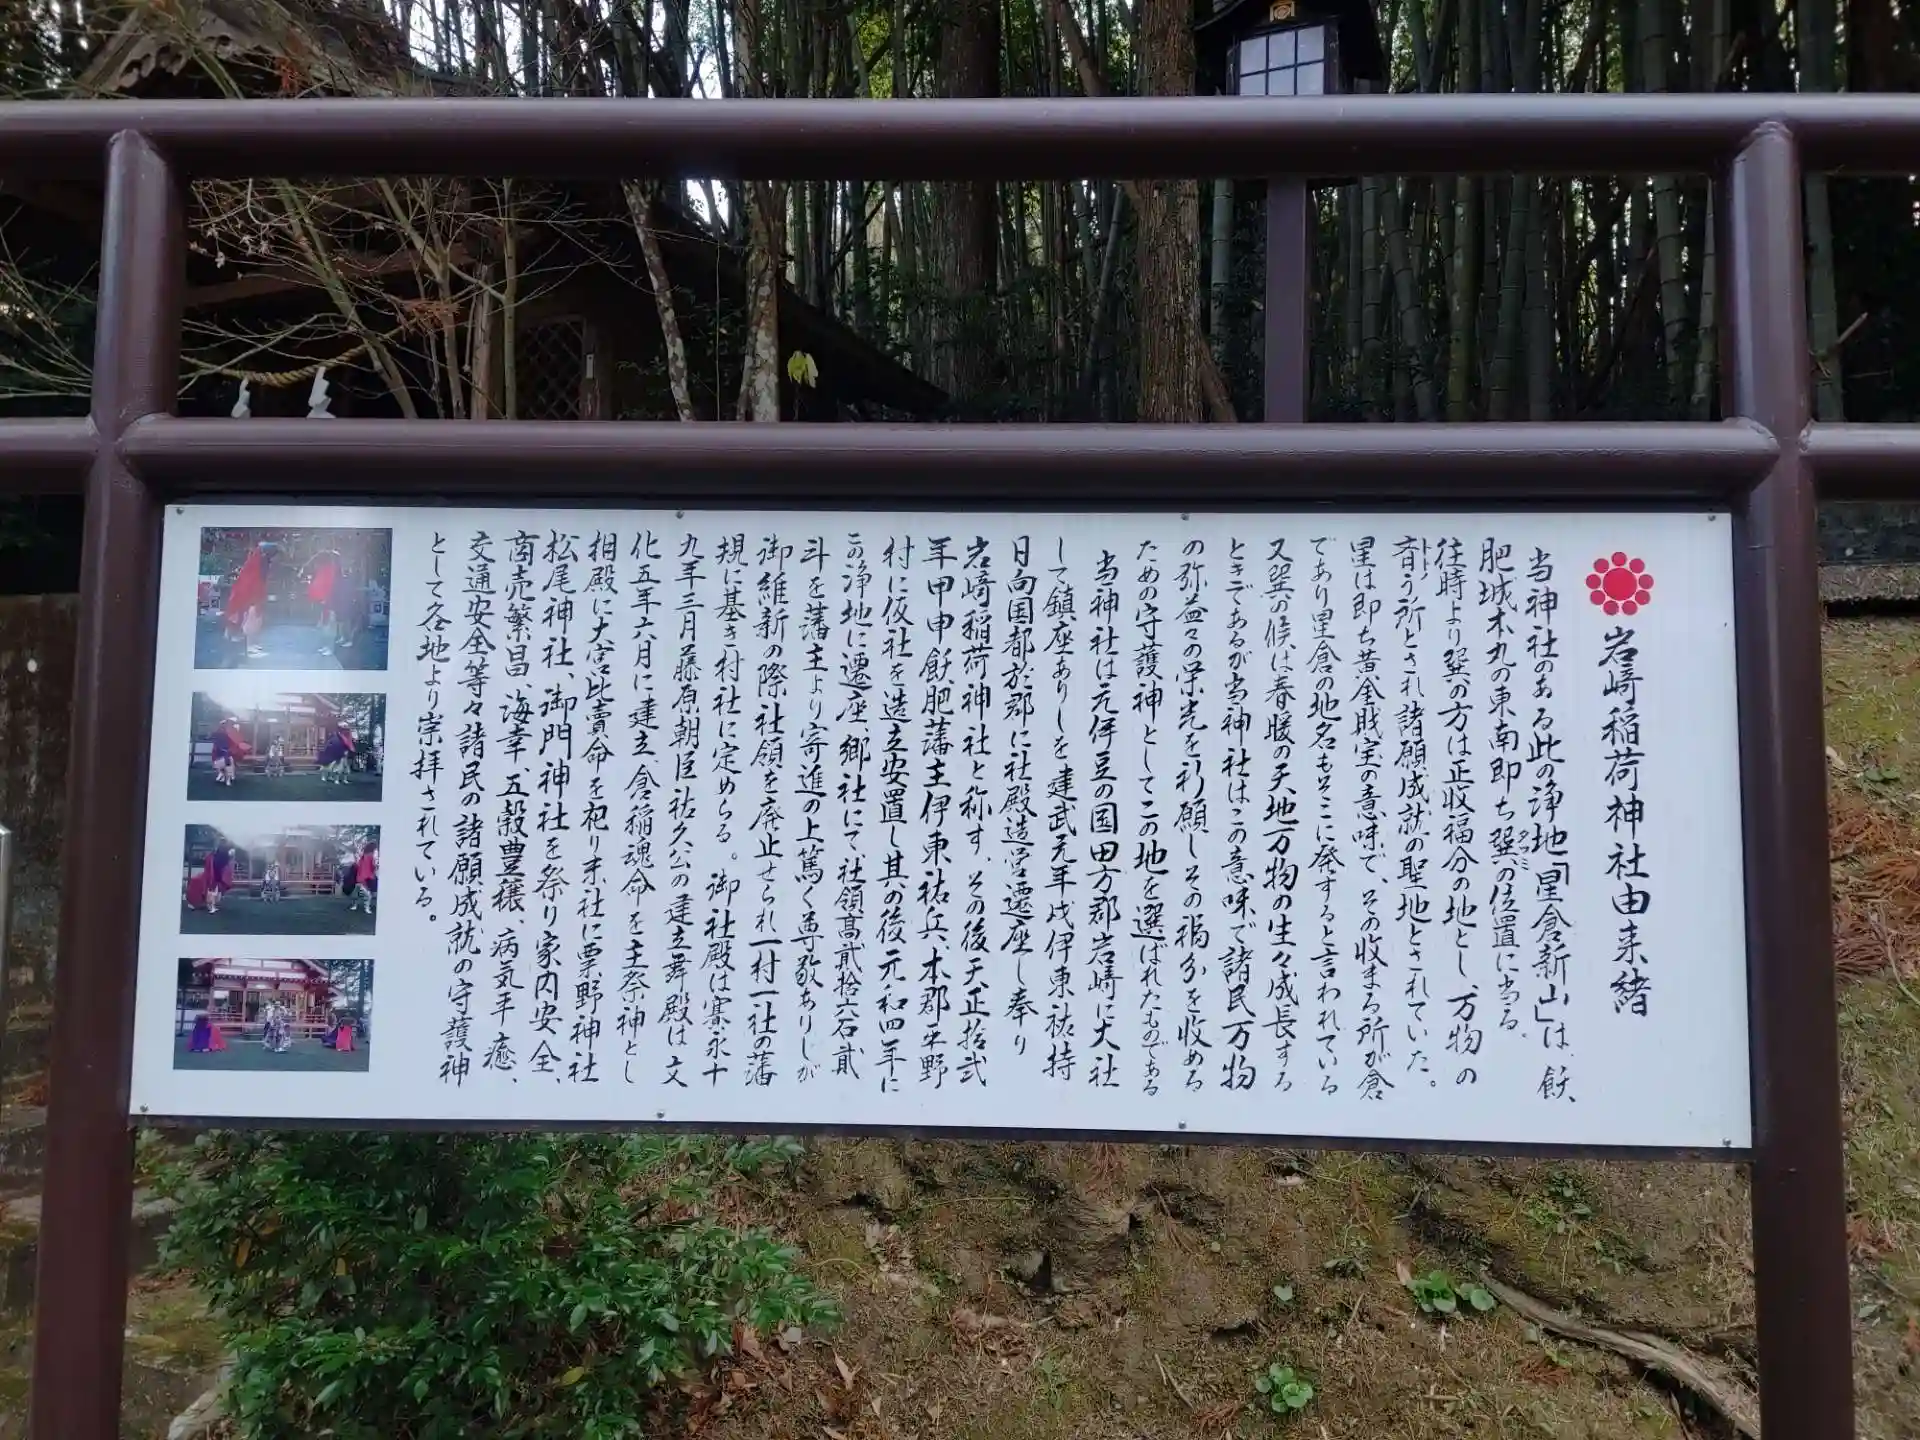 岩﨑稲荷神社由来緒
当神社のある此の浄地「星倉新山」は、飫
肥城本丸の東南即ち巽の位置に当る、
往時より巽の方は正収福分の地とし、万物の
斉う所とされ諸願成就の聖地とされていた。
星は即ち黄金財宝の意味で、その收まる所が倉
であり星倉の地名もそこに発すると言われている
又巽の候は春暖の天地万物の生々成長する
ときであるが当神社はこの意味で諸民万物
の弥益々の栄光を祈願しその福分を收める
ための守護神としてこの地を選ばれたものである
当神社は元伊豆の国田方郡岩﨑に大社
して鎮座ありしを建武元年戊伊東祐持
日向国都於郡に社殿造営遷座し奉り
岩﨑稲荷神社と称す、その後天正拾弐
年甲申飫肥藩主伊東祐兵、本郡平野
村に仮社を造立安置し其の後元和四年に
この浄地に遷座、郷社にて社領髙貳拾六石貳
斗を藩主より寄進の上篤く尊敬ありしが
御維新の際社領を廃止せられ一村一社の藩
規に基き村社に定めらる。御社殿は寛永十
九年三月藤原朝臣祐久公の建立舞殿は文
化五年六月に建立、倉稲魂命を主祭神とし
相殿に大宮比賣命を祀り末社に粟野神社
松尾神社、御門神社を祭り家内安全、
商売繁昌、海幸、五穀豊穣、病気平癒、
交通安全等々諸民の諸願成就の守護神
として各地より崇拝されている。